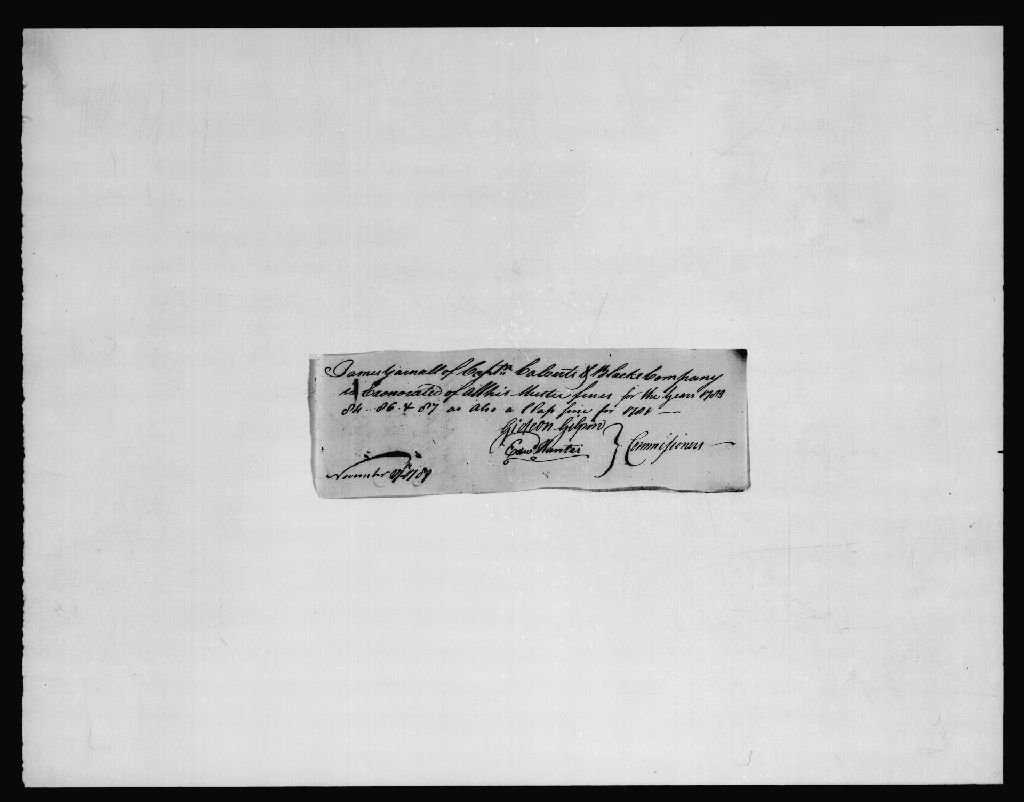 James Yarnall of Captn. Calverts & Blacks Company
is Exonorated of all his Muster fines for the Years 1783
84 - 86 & 87 as also a Class fine for 1781 —
Gideon Gilpin
Edwd. Hunter } Commissioners
November 27th 1789